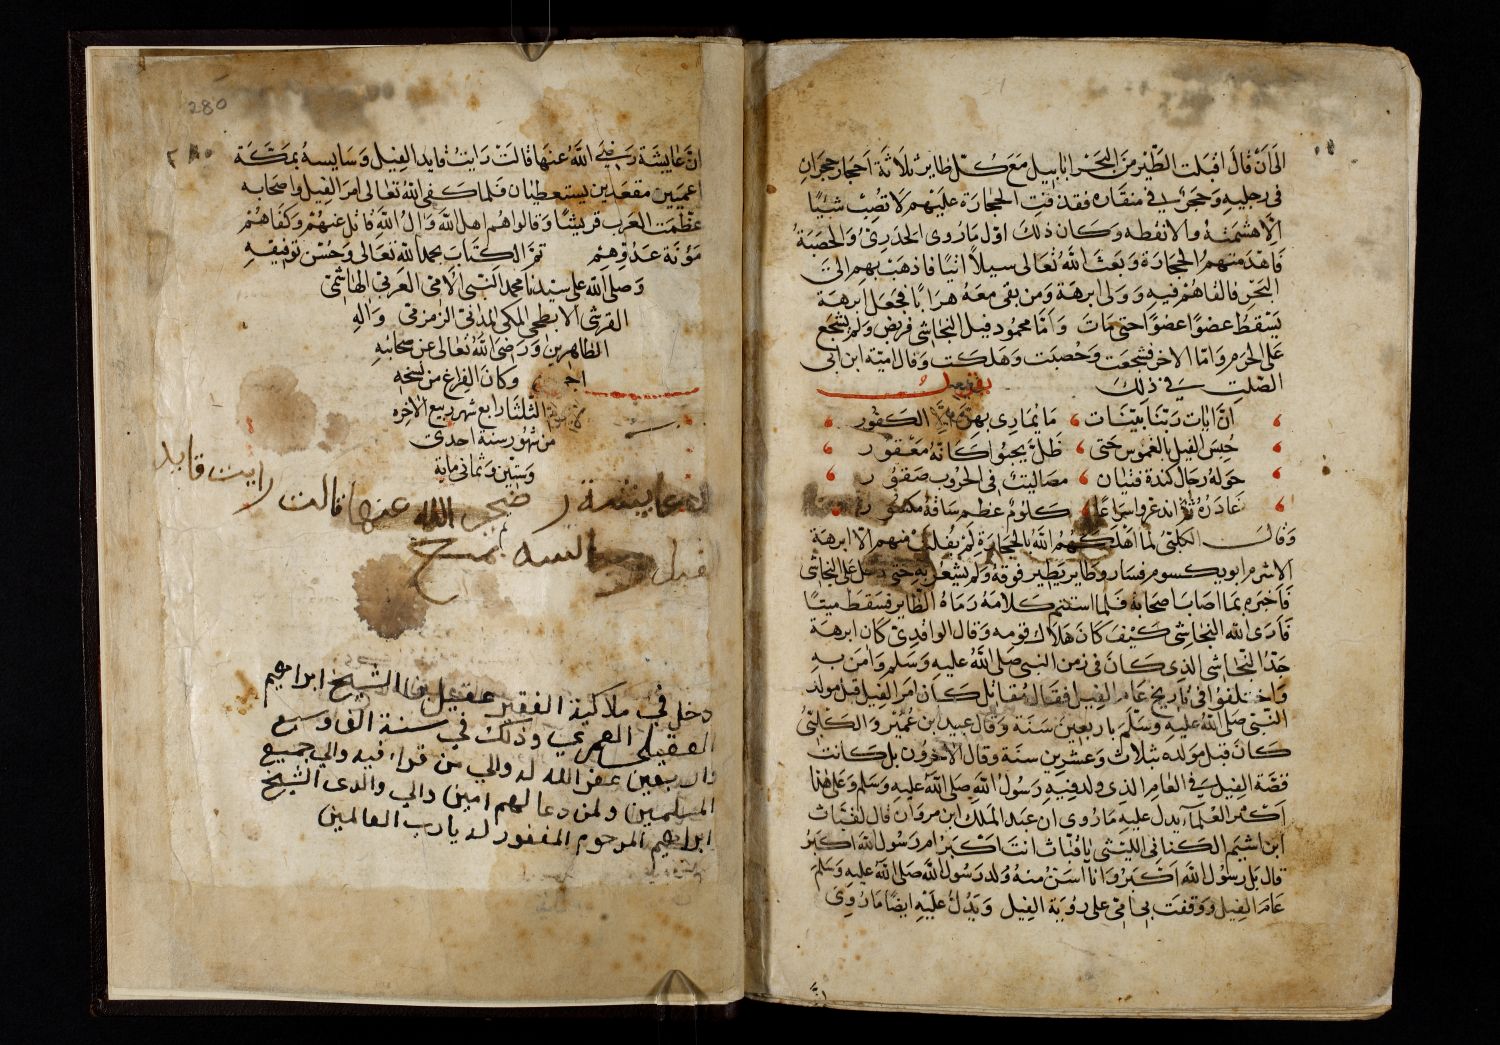 الى أن قال اقبلت الطير من البحر ابابيل مع كل طاير ثلاثة احجار حجران
في رجليه وحجر في منقاره فقذفت الحجارة عليهم لا تصيب شيًا
الا هشمته والا نفطه وكان ذلك اول ما روى الجدري والحصبة
فاهدمتهم الحجارة وبعث الله تعالى سيلا اتيا فاذهب بهم الى
البحر فالقاهم فيه وولى ابرهة ومن بقى معه هرابا فجعل ابرهة
يسقط عضوا عضوا حتى مات واما محمود فيل النجاشي فربض ولم يشجع
على الحرم واما الاخر فشجعت وحصبت وهلكت وقال امية ابن ابى
الصلت في ذلك
ان ايات ربنا بينات ما يمارى بهن الا الكفور
حبس الفيل بالمغمس حتى ظل يحبوا كانه معقور
حوله رجال كندة فتيان مصاليت في الحروب صقور
غادره ثم انذعروا سراعا كلهم عظم ساقه مكسور
وقال الكلبى لما اهلكهم الله بالحجارة لم يفلت منهم الا ابرهة
الاشرم ابو يكسوم فسار وطاير يطير فوقه ولم يشعر به حتى دخل على النجاشى
فاخبره بما اصاب اصحابه فلما استتم كلامه رماه الطاير فسقط ميتا
فارى الله النجاشي كيف كان هلاك قومه وقال الواقدى كان ابرهة
جد النجاشى الذى كان في زمن النبي صلى الله عليه وسلم وامن به
واختلفوا في تاريخ عام الفيل فقال مقاتل كان امر الفيل قبل مولد
النبي صلى الله عليه وسلم باربعين سنة وقال عبيد بن عمير والكلبى
كان قبل مولده بثلاث وعشرين سنة وقال الاخرون بل كانت
قصة الفيل في العام الذي ولد فيه رسول الله صلى الله عليه وسلم وعلى هذا
اكثر العلماء يدل عليه ما روى ان عبد الملك ابن مروان قال لقباث
ابن اشيم الكناني الليثى يا قباث انت اكبر ام رسول الله اكبر
قال بل رسول الله اكبر وانا اسن منه ولد رسول الله صلى الله عليه وسلم
عام الفيل ووقفت بى امى على روية الفيل ويدل عليه ايضا ما روى
280
٢٨٠
ان عايشة رضى الله عنها قالت رايت قايد الفيل وسايسه بمكة
اعميين مقعدين يستعطيان فلما كفى الله تعالى امر الفيل واصحابه
عظمت العرب قريشا وقالوا هم اهل الله وال الله قاتل عنهم وكفاهم
مؤنة عدوهم تم الكتاب بحمد الله تعالى وحسن توفيقه
وصلى الله على سيدنا محمد النبي الامي العربي الهاشمي
القرشي الابطحي المكي المدني الزمزمي واله
الطاهرين ورضى الله تعالى عن صحابته
وكان الفراغ من نسخه
الثلثا رابع شهر ربيع الاخره
من شهور سنة احدى
وستين وثماني ماية
ان عايشة رضى الله عنها قالت رايت قايد
الفيل
دخل في ملاكية الفقير عقيل بن الشيخ ابراهيم
العقيلي العمري وذلك في سنة الف وسبع
واربعين غفر الله له ولمن قراء فيه والى جميع
المسلمين ولمن دعا لهم امين والى والدى الشيخ
ابراهيم المرحوم المغفور له يا رب العالمين